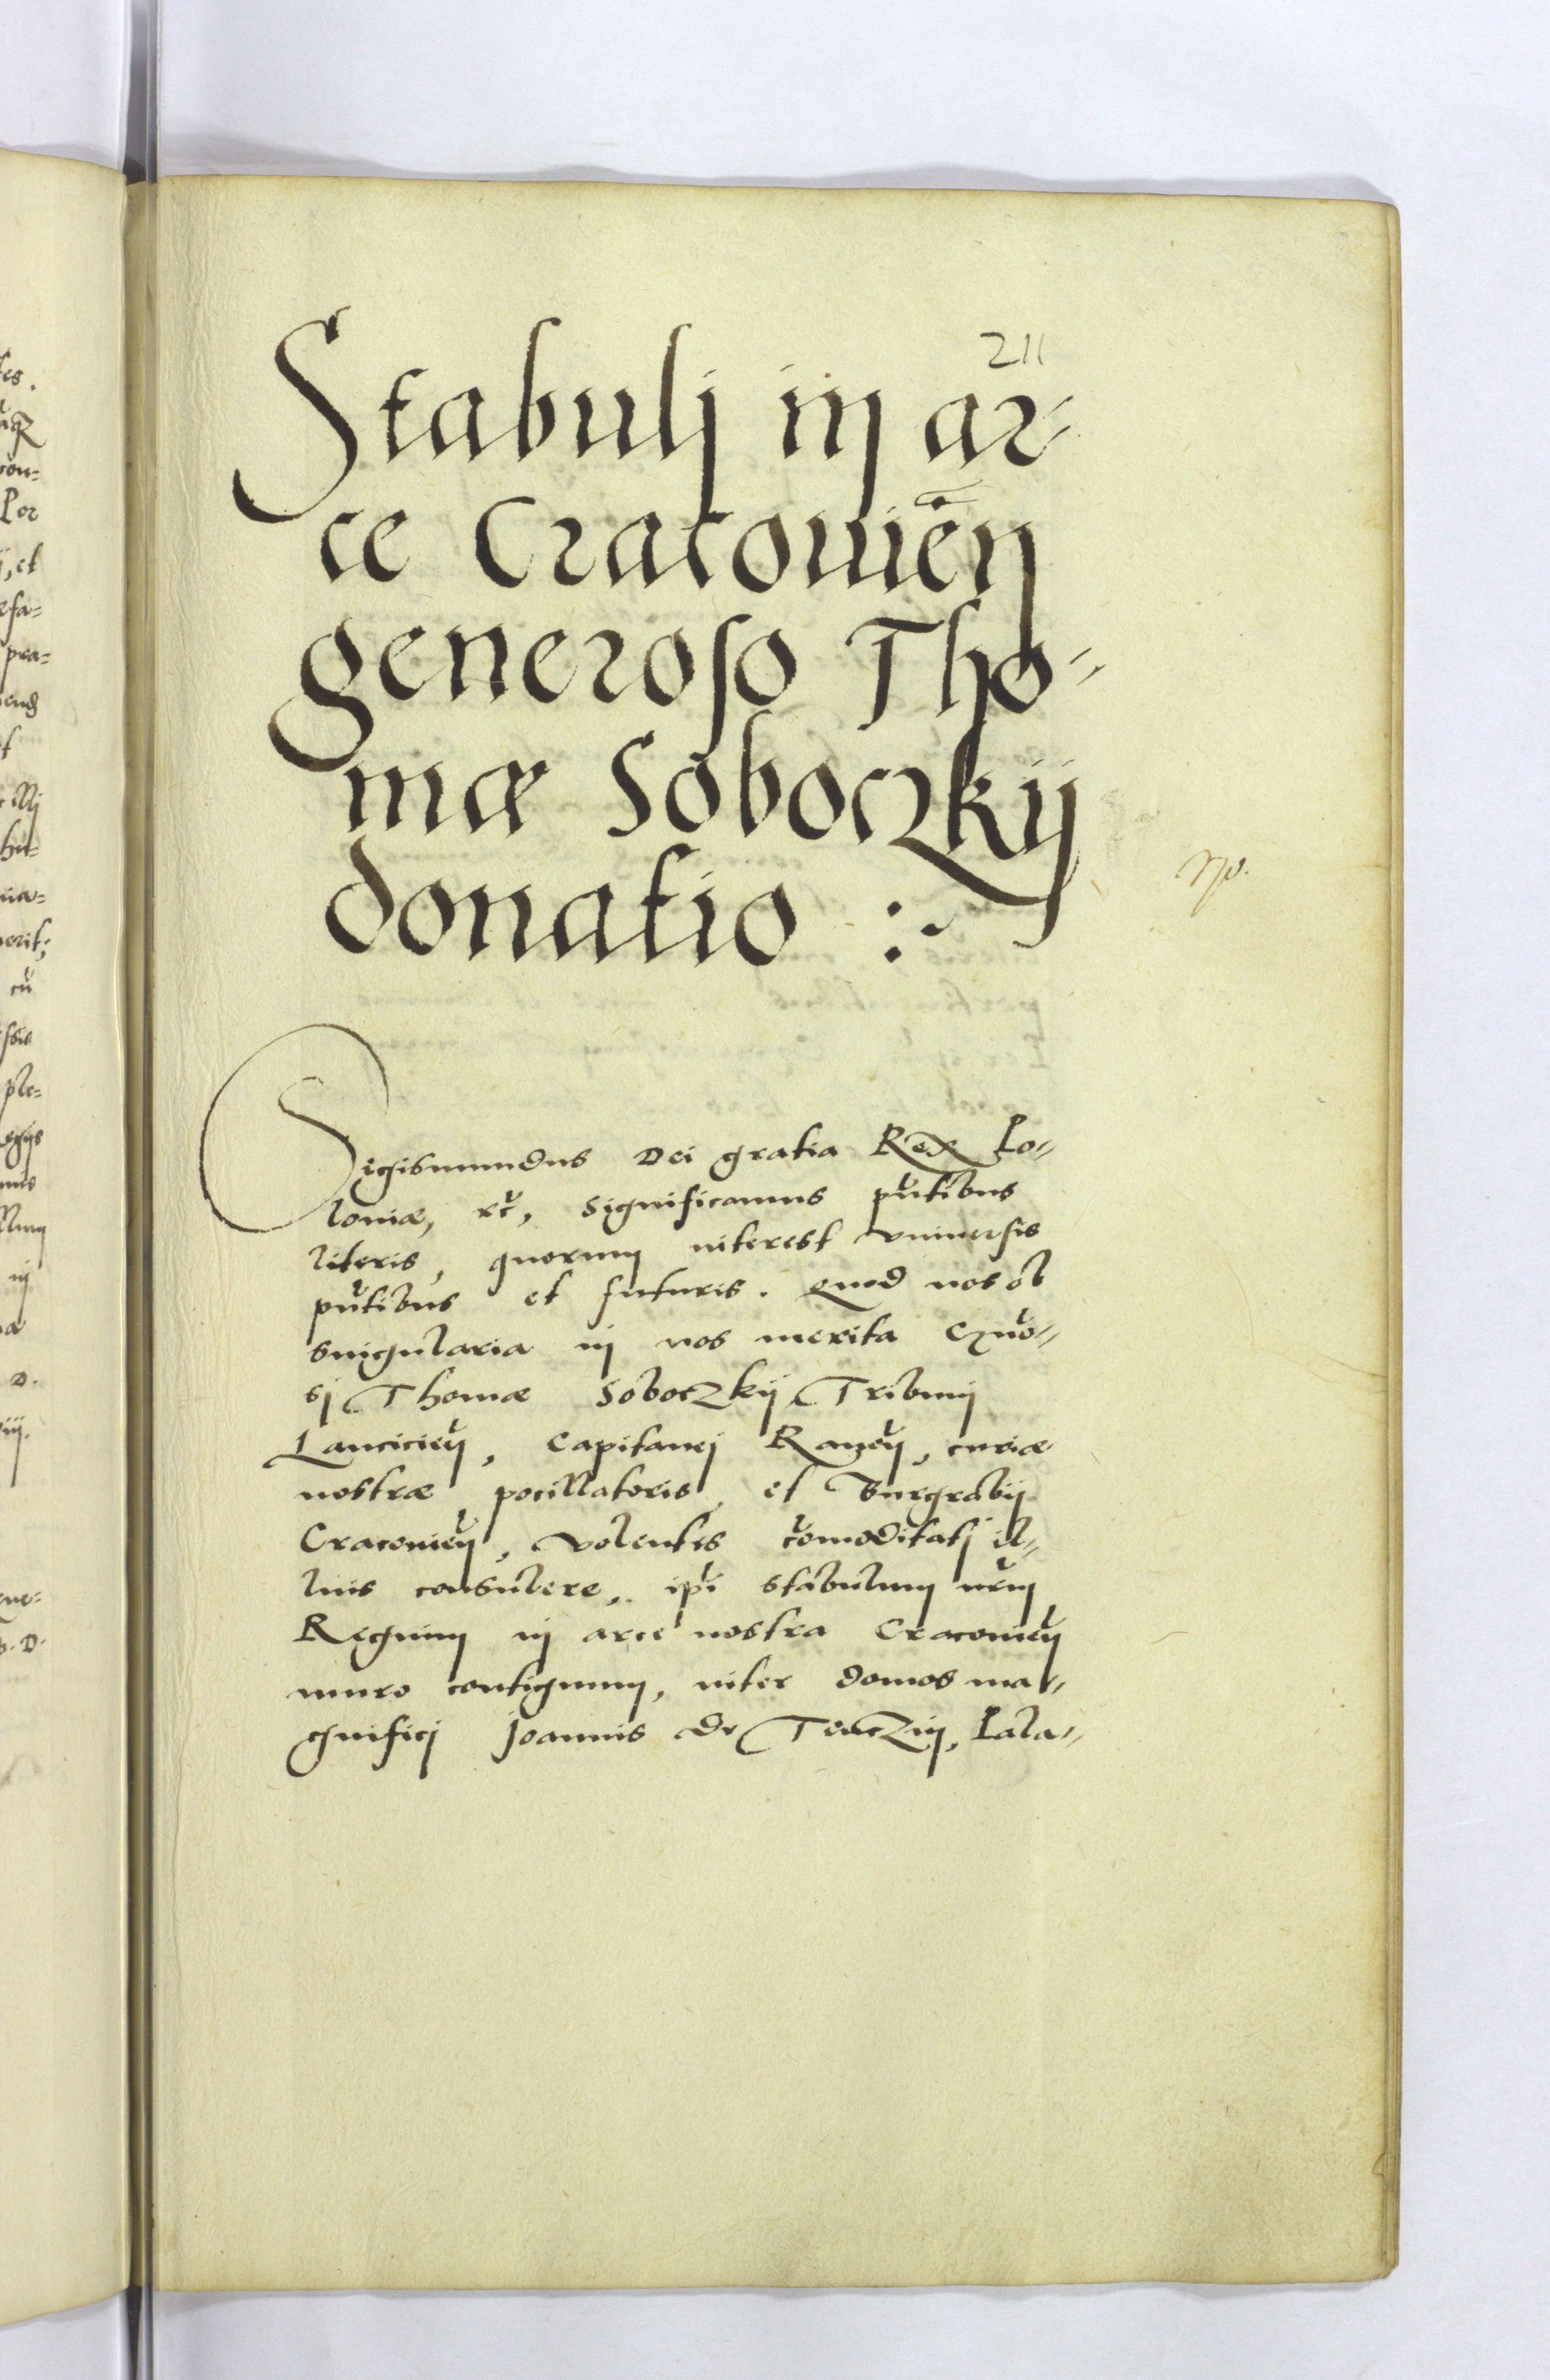 211
Stabulj in ar-
ce Cracouień
generoso Tho-
mæ Soboczkij
donatio :~
Sigismundus Dei gratia Rex Po-
loniæ, etc̃, significamus pn̄tibus
literis, quorum interest vniuersis
pn̄tibus et futuris. Quod nos ob
singularia in nos merita Gn̄o-
sj Thomæ Soboczkij Tribunj
Lancicień, Capitanej Raweń, curiæ
nostræ pocillatoris, et Burgrabij
Cracouień, volentes com̄oditatj il-
lius consulere, ip̄i stabulum nr̄m
Regium in arce nostra Cracouień
muro contiguum, inter domos ma-
gnificj Joannis de Tenczin, Pala-